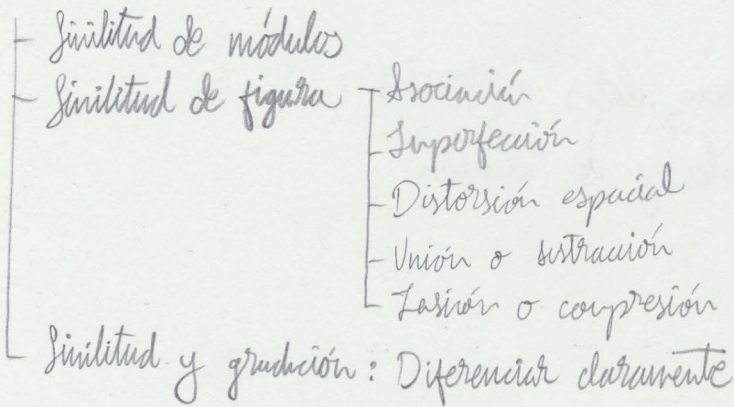 Similitud de módulos
Similitud de figura
Asociación
Imperfección
Distorsión espacial
Unión o sustracción
o compresión
Similitud y gradación: Diferenciar claramente